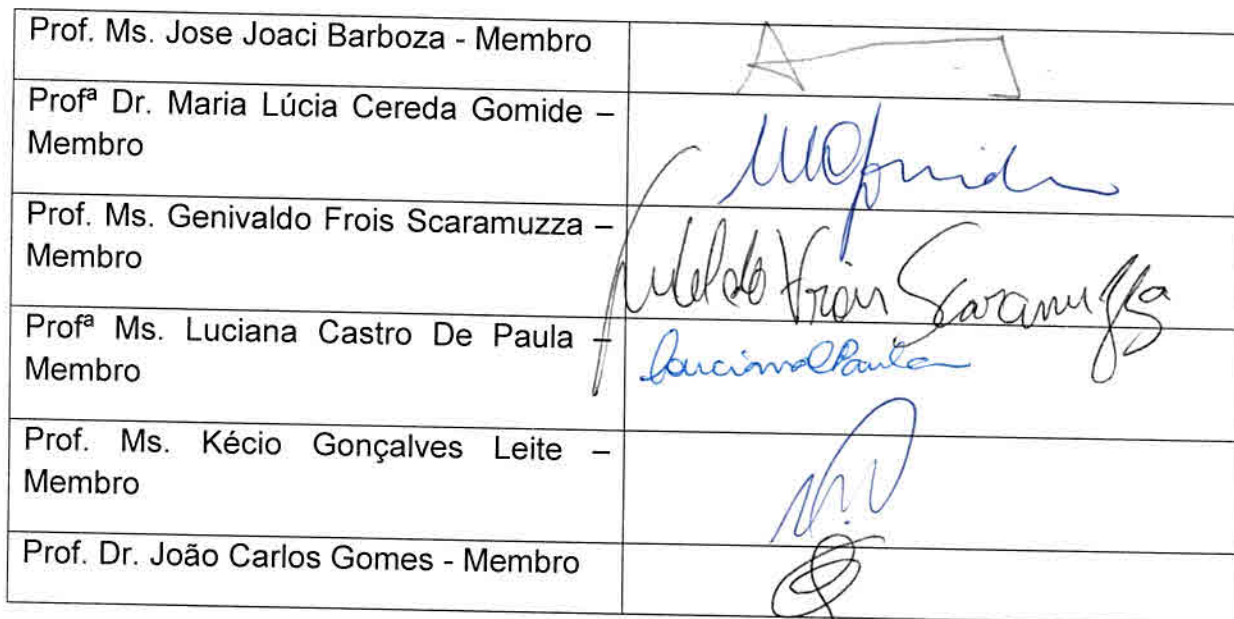 Prof. Ms. Jose Joaci Barboza - Membro
Profª Dr. Maria Lúcia Cereda Gomide –
Membro
Prof. Ms. Genivaldo Frois Scaramuzza –
Membro
Frois Scaramuzza
Profª Ms. Luciana Castro De Paula –
Membro
Prof. Ms. Kécio Gonçalves Leite –
Membro
Prof. Dr. João Carlos Gomes - Membro